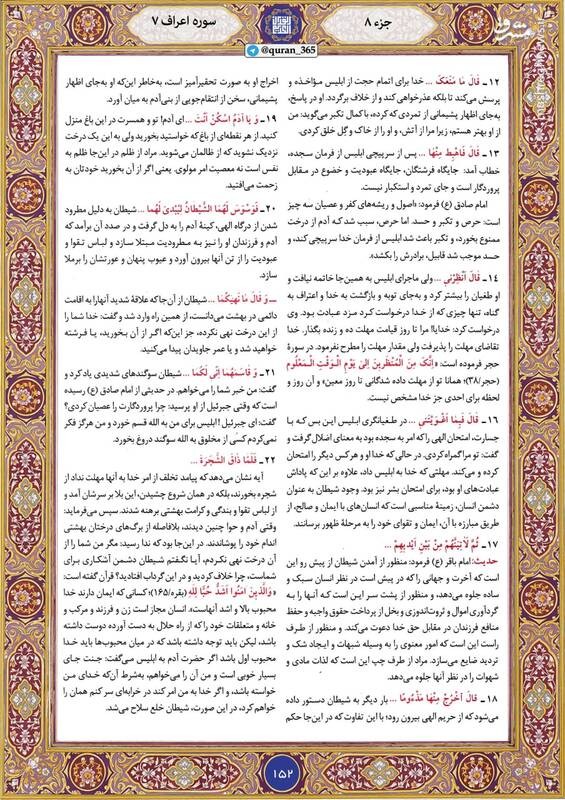 جزء ۸
سوره اعراف ۷
@quran_365
۱۲ـ قَالَ مَا مَنَعَکَ ... خدا برای اتمام حجت از ابلیس مؤاخذه و
پرسش می‌کند تا بلکه عذرخواهی کند و از خلاف برگردد. او در پاسخ،
به‌جای اظهار پشیمانی از تمردی که کرده، با کمال تکبر می‌گوید: من
از او بهتر هستم، زیرا مرا از آتش، و او را از خاک و گِل خلق کردی.
۱۳ـ قَالَ فَاهْبِطْ مِنْهَا ... پس از سرپیچی ابلیس از فرمان سجده،
خطاب آمد: جایگاه فرشتگان، جایگاه عبودیت و خضوع در مقابل
پروردگار است و جای تمرد و استکبار نیست.
امام صادق (ع) فرمود: «اصول و ریشه‌های کفر و عصیان سه چیز
است: حرص و تکبر و حسد. اما حرص، سبب شد که آدم از درخت
ممنوع بخورد، و تکبر باعث شد ابلیس از فرمان خدا سرپیچی کند، و
حسد موجب شد قابیل، برادرش را بکشد».
۱۴ـ قَالَ أَنْظِرْنِی ... ولی ماجرای ابلیس به همین‌جا خاتمه نیافت و
او طغیان را بیشتر کرد و به‌جای توبه و بازگشت به خدا و اعتراف به
گناه، تنها چیزی که از خدا درخواست کرد مزد عبادت بود. وی
درخواست کرد: خدایا! مرا تا روز قیامت مهلت ده و زنده بگذار. خدا
تقاضای مهلت را پذیرفت ولی مقدار مهلت را مطرح نفرمود. در سورهٔ
حجر فرموده است: «اِنَّکَ مِنَ الْمُنْظَرینَ اِلیٰ یَوْمِ الْوَقْتِ الْمَعْلُومِ
(حجر/۳۸)؛ همانا تو از مهلت داده شدگانی تا روز معین» و آن روز و
لحظه برای احدی جز خدا مشخص نیست.
۱۶ـ قَالَ فَبِمَا أَغْوَیْتَنِی ... در طغیانگری ابلیس این بس که با
جسارت، امتحان الهی را که امر به سجده بود به معنای اضلال گرفت و
گفت: تو مرا گمراه کردی. در حالی که خدا او و هر کس دیگر را امتحان
کرده و می‌کند. مهلتی که خدا به ابلیس داد، علاوه بر این که پاداش
عبادت‌های او بود، برای امتحان بشر نیز بود. وجود شیطان به عنوان
دشمن انسان، زمینهٔ مناسبی است که انسان‌های با ایمان و صالح، از
طریق مبارزه با آن، ایمان و تقوای خود را به مرحلهٔ ظهور برسانند.
۱۷ـ ثُمَّ لَآتِیَنَّهُمْ مِنْ بَیْنِ أَیْدِیهِمْ ...
حدیث: امام باقر (ع) فرمود: منظور از آمدن شیطان از پیش رو این
است که آخرت و جهانی را که در پیش است در نظر انسان سبک و
ساده جلوه می‌دهد، و منظور از پشت سر این است که آنها را به
گردآوری اموال و ثروت‌اندوزی و بخل از پرداخت حقوق واجبه و حفظ
منافع فرزندان در مقابل حق خدا دعوت می‌کند. و منظور از طرف
راست این است که امور معنوی را به وسیله شبهات و ایجاد شک و
تردید ضایع می‌سازد. مراد از طرف چپ این است که لذات مادی و
شهوات را در نظر آنها جلوه می‌دهد.
۱۸ـ قَالَ اخْرُجْ مِنْهَا مَذْءُومًا ... بار دیگر به شیطان دستور داده
می‌شود که از حریم الهی بیرون رود؛ با این تفاوت که در این‌جا حکم
اخراج او به صورت تحقیرآمیز است، به‌خاطر این‌که او به‌جای اظهار
پشیمانی، سخن از انتقام‌جویی از بنی‌آدم به میان آورد.
۱۹ـ وَ یَا آدَمُ اسْکُنْ أَنْتَ ... ای آدم! تو و همسرت در این باغ منزل
کنید. از هر نقطه‌ای از باغ که خواستید بخورید ولی به این یک درخت
نزدیک نشوید که از ظالمان می‌شوید. مراد از ظلم در این‌جا ظلم به
نفس است نه معصیت امر مولوی. یعنی اگر از آن بخورید خودتان به
زحمت می‌افتید.
۲۰ـ فَوَسْوَسَ لَهُمَا الشَّیْطَانُ لِیُبْدِیَ لَهُمَا ... شیطان به دلیل مطرود
شدن از درگاه الهی، کینهٔ آدم را به دل گرفت و در صدد آن برآمد که
آدم و فرزندان او را نیز به مطرودیت مبتلا سازد و لباس تقوا و
عبودیت را از تن آنها بیرون آورد و عیوب پنهان و عورتشان را برملا
سازد.
ـ وَ قَالَ مَا نَهَیکُمَا ... شیطان از آن‌جا که علاقهٔ شدید آنها را به اقامت
دائمی در بهشت می‌دانست، از همین راه وارد شد و گفت: خدا شما را
از این درخت نهی نکرده، جز این‌که اگر از آن بخورید، یا فرشته
خواهید شد و یا عمر جاویدان پیدا می‌کنید.
۲۱ـ وَ قَاسَمَهُمَا إِنِّی لَکُمَا ... شیطان سوگندهای شدیدی یاد کرد و
گفت: من خیر شما را می‌خواهم. در حدیثی از امام صادق (ع) رسیده
است که وقتی جبرئیل از او پرسید: چرا پروردگارت را عصیان کردی؟
گفت: ای جبرئیل! ابلیس برای من به الله قسم خورد و من هرگز فکر
نمی‌کردم کسی از مخلوق به الله سوگند دروغ بخورد.
۲۲ـ فَلَمَّا ذَاقَا الشَّجَرَةَ ...
آیه نشان می‌دهد که پیامد تخلف از امر خدا به آنها مهلت نداد از
شجره بخورند، بلکه در همان شروع چشیدن، این بلا بر سرشان آمد و
از لباس تقوا و بندگی و کرامت بهشتی برهنه شدند. سپس می‌فرماید:
وقتی آدم و حوا چنین دیدند، بلافاصله از برگ‌های درختان بهشتی
اندام خود را پوشاندند. در این‌جا بود که ندا رسید: مگر من شما را از
آن درخت نهی نکردم، آیا نگفتم شیطان دشمن آشکاری برای
شماست، چرا خلاف کردید و در این گرداب افتادید؟ قرآن گفته است:
«وَالَّذینَ امَنُوا اَشَدُّ حُبًّا لِلّٰهِ (بقره/۱۶۵)؛ کسانی که ایمان دارند خدا
محبوب بالا و اشد آنهاست». انسان مجاز است زن و فرزند و مرکب و
خانه و متعلقات خود را که از راه حلال به دست آورده دوست داشته
باشد، لیکن باید توجه داشته باشد که در میان محبوب‌ها باید خدا
محبوب اول باشد. اگر حضرت آدم به ابلیس می‌گفت: جنت جای
بسیار خوبی است و من آن را می‌خواهم، به‌شرط آن‌که خدای من
خواسته باشد، و اگر خدا به من امر کند در خرابه‌ای سر کنم همان را
خواهم کرد، در این صورت، شیطان خلع سلاح می‌شد.
۱۵۲